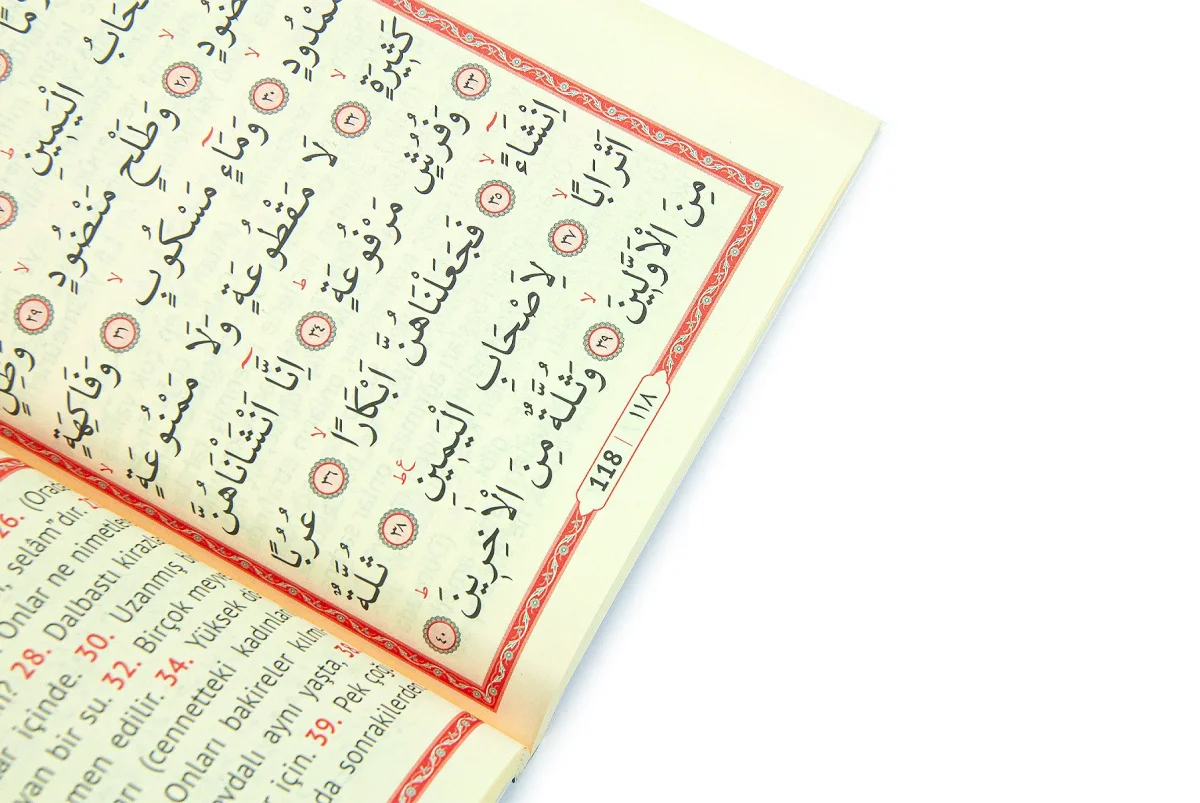 الْيَمِينِ
ضُودٍ ﴿٢٨﴾ وَطَلْحٍ مَنْضُودٍ ﴿٢٩﴾ وَظِلٍّ
مَمْدُودٍ ﴿٣٠﴾ وَمَٓاءٍ مَسْكُوبٍ ﴿٣١﴾ وَفَاكِهَةٍ
كَثِيرَةٍ ﴿٣٢﴾ لَا مَقْطُوعَةٍ وَلَا مَمْنُوعَةٍ
﴿٣٣﴾ وَفُرُشٍ مَرْفُوعَةٍ ﴿٣٤﴾ اِنَّٓا اَنْشَاْنَاهُنَّ
اِنْشَٓاءً ﴿٣٥﴾ فَجَعَلْنَاهُنَّ اَبْكَارًا ﴿٣٦﴾ عُرُبًا
اَتْرَابًا ﴿٣٧﴾ لِاَصْحَابِ الْيَمِينِ ﴿٣٨﴾ ثُلَّةٌ
مِنَ الْاَوَّلِينَ ﴿٣٩﴾ وَثُلَّةٌ مِنَ الْاٰخِرِينَ ﴿٤٠﴾
118 | ١١٨
26. (Orada
selâm"dır.
Onlar ne nimetle
28. Dalbastı kirazla
içinde. 30. Uzanmış b
bir su. 32. Birçok meyve
men edilir. 34. Yüksek dö
(cennetteki kadınlar
Onları bakireler kılm
aynı yaşta, 38
için. 39. Pek çoğ
da sonrakilerden